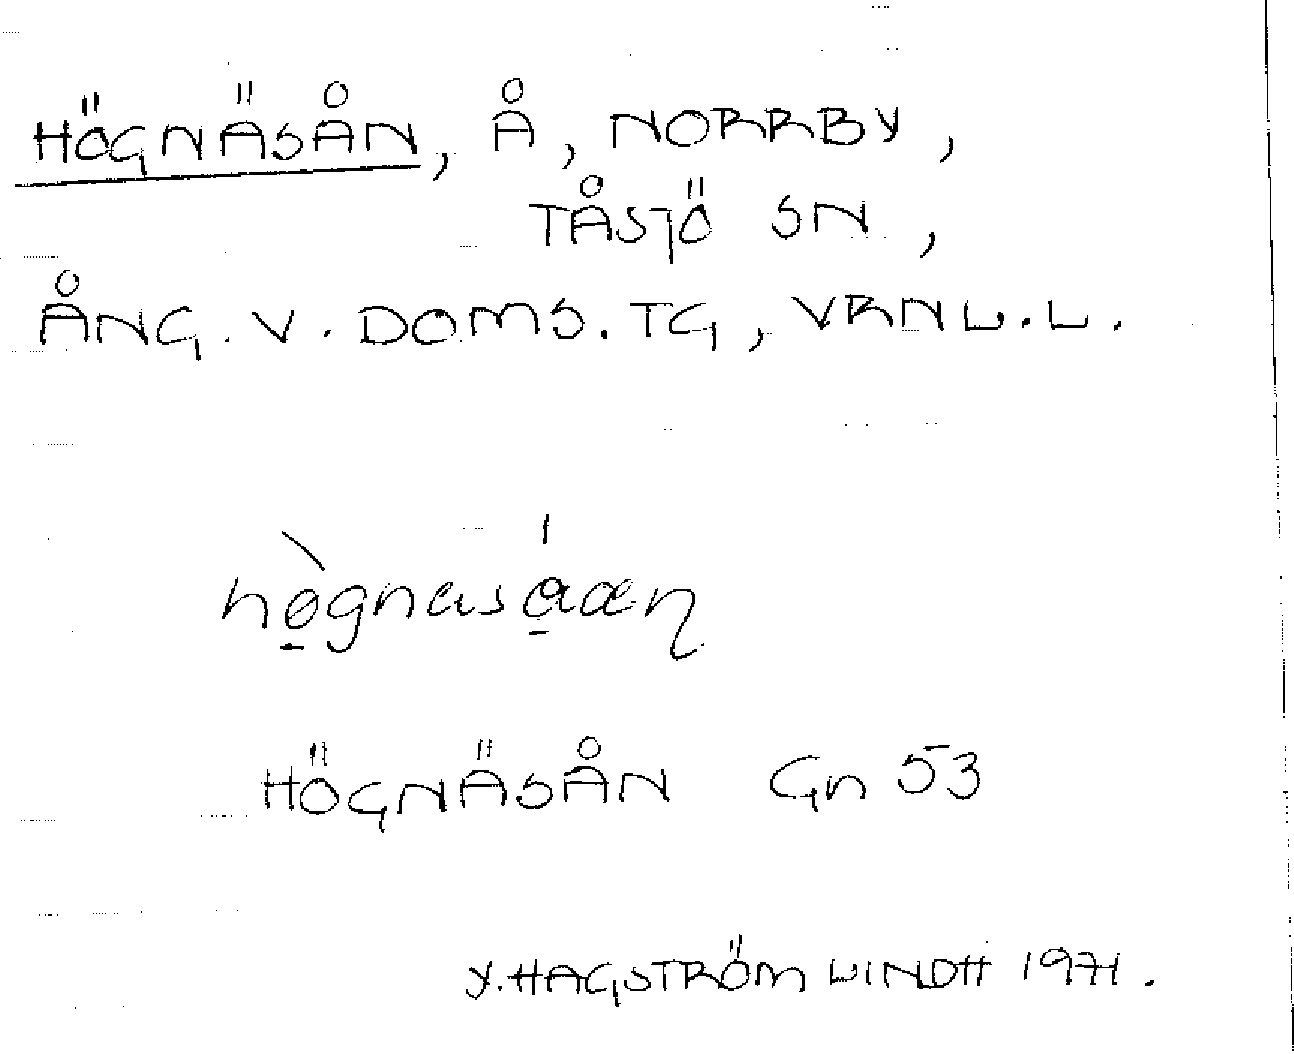 HÖGNÄSÅN, Å, NORRBY,
TÅSJÖ SN,
ÅNG. V. DOMS. TG, VRNL.L.
hògnasáaɳ
HÖGNÄSÅN Gn 53
Y. HAGSTRÖM LINDH 1971.